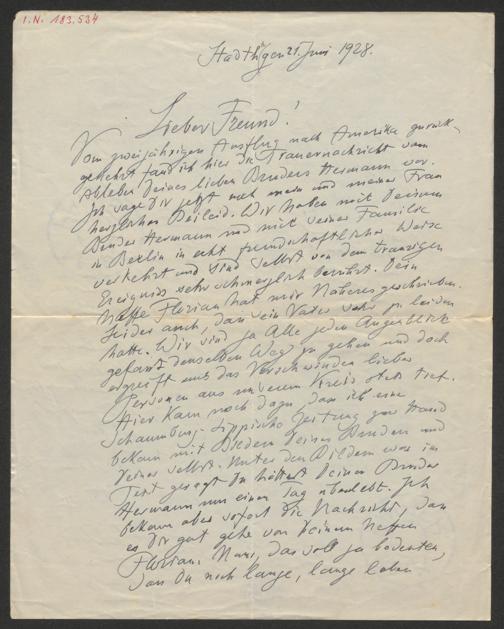 I.N. 183.534
Stadthagen 21. Juni 1928.
Lieber Freund!
Vom zweijährigen Ausflug nach Amerika zurück-
gekehrt fand ich hier die Trauernachricht vom
Ableben Deines lieben Bruders Hermann vor.
Ich sage Dir jetzt noch mein und meiner Frau
herzliches Beileid. Wir haben mit Deinem
Bruder Hermann und mit seiner Familie
in Berlin in echt freundschaftlicher Weise
verkehrt und sind selbst von dem traurigen
Ereignis sehr schmerzlich berührt. Dein
Neffe Florian hat mir Näheres geschrieben.
Leider auch, dass sein Vater sehr zu leiden
hatte. Wir sind ja Alle jeden Augenblick
gefasst denselben Weg zu gehen und doch
ergreift uns das Verschwinden lieber
Personen aus unserem Kreis stets tief.
Hier kam noch dazu, dass ich eine
Schaumburg-Lippische Zeitung zur Hand
bekam mit Bildern Deines Bruders und
Deiner selbst. Unter den Bildern war im
Text gesagt Du hättest Deinen Bruder
Hermann nur einen Tag überlebt. Ich
bekam aber sofort die Nachricht, dass
es Dir gut gehe von Deinem Neffen
Florian. Nun, das soll ja bedeuten,
dass Du noch lange, lange leben